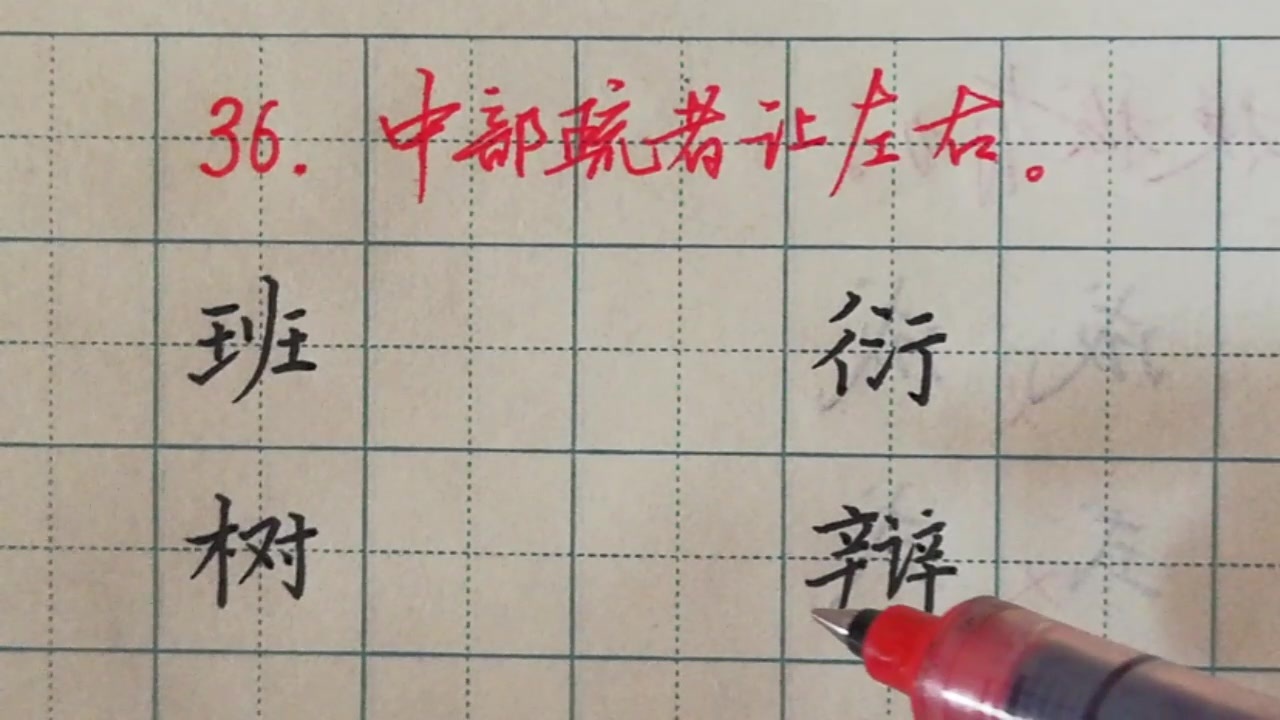 36. 中部疏者让左右。
班 衍
树 辩